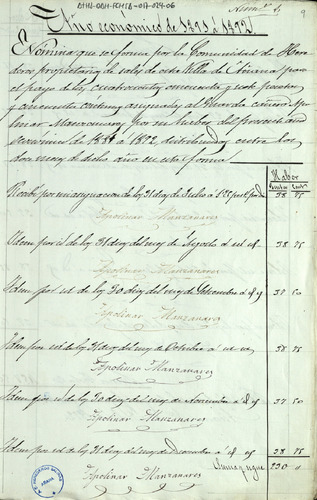 Núm.º 4
9
Año económico de 1891 á 1892.
Nómina que se forma por la Comunidad de Herederos
propietarios de sales de esta Villa de Añana para
el pago de los cuatrocientos cincuenta y siete pesetas
y cincuenta centimos asignadas al Guarda
Manzanares por su sueldo del presente año
económico de 1891 a 1892 distribuidos entre los
doce meses de dicho año en esta forma
Haber
Pesetas Cents
Recibí por mi asignacion de los 31 dias de Julio á 1'25 pesetas por dia 38 75
Apolinar Manzanares
Idem por id de los 31 dias del mes de Agosto á id id 38 75
Apolinar Manzanares
Idem por id de los 30 dias del mes de Setiembre á id id 37 50
Apolinar Manzanares
Idem por id de los 31 dias del mes de Octubre á id id 38 75
Apolinar Manzanares
Idem por id de los 30 dias del mes de Noviembre á id id 37 50
Apolinar Manzanares
Idem por id de los 31 dias del mes de Diciembre á id id 38 75
Suma y sigue 230 "
Apolinar Manzanares